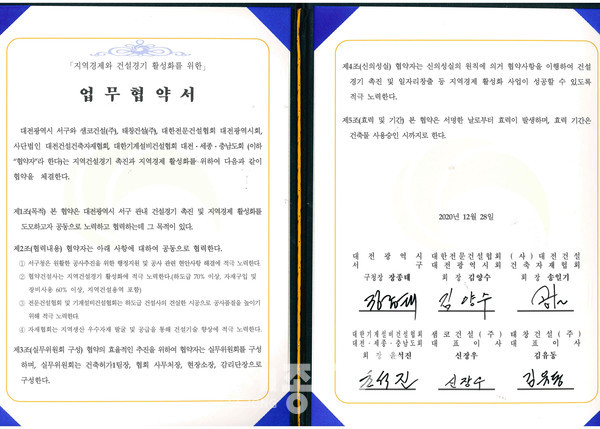 「지역경제와 건설경기 활성화를 위한」
업 무 협 약 서
대전광역시 서구와 샘코건설(주), 태창건설(주), 대한전문건설협회 대전광역시회,
사단법인 대전건설건축자재협회, 대한기계설비건설협회 대전·세종·충남도회 (이하
"협약자"라 한다)는 지역건설경기 촉진과 지역경제 활성화를 위하여 다음과 같이
협약을 체결한다.
제1조(목적) 본 협약은 대전광역시 서구 관내 건설경기 촉진 및 지역경제 활성화를
도모하고자 공동으로 노력하고 협력하는데 그 목적이 있다.
제2조(협력내용) 협약자는 아래 사항에 대하여 공동으로 협력한다.
① 서구청은 원활한 공사추진을 위한 행정지원 및 공사 관련 현안사항 해결에 적극 노력한다.
② 협약건설사는 지역건설경기 활성화에 적극 노력한다.(하도급 70% 이상, 자재구입 및
장비사용 60% 이상, 지역건설용역 포함)
③ 전문건설협회 및 기계설비건설협회는 하도급 건설사의 견실한 시공으로 공사품질을 높이기
위해 적극 노력한다.
④ 자재협회는 지역생산 우수자재 발굴 및 공급을 통해 건설기술 향상에 적극 노력한다.
제3조(실무위원회 구성) 협약의 효율적인 추진을 위하여 협약자는 실무위원회를 구성
하며, 실무위원회는 건축허가1팀장, 협회 사무처장, 현장소장, 감리단장으로
구성한다.
제4조(신의성실) 협약자는 신의성실의 원칙에 의거 협약사항을 이행하여 건설
경기 촉진 및 일자리창출 등 지역경제 활성화 사업이 성공할 수 있도록
적극 노력한다.
제5조(효력 및 기간) 본 협약은 서명한 날로부터 효력이 발생하며, 효력 기간은
건축물 사용승인 시까지로 한다.
2020년 12월 28일
대 전 광 역 시 대한전문건설협회 (사)대전건설
서 구 대 전 광 역 시 회 건축자재협회
구청장 장종태 회 장 김양수 회 장 송일기
김 양수
대한기계설비건설협회 샘코건설(주) 태창건설(주)
대전·세종·충남도회 대 표 이 사 대 표 이 사
회 장 윤석진 신장우 김유동
윤석진 신장우 김유동